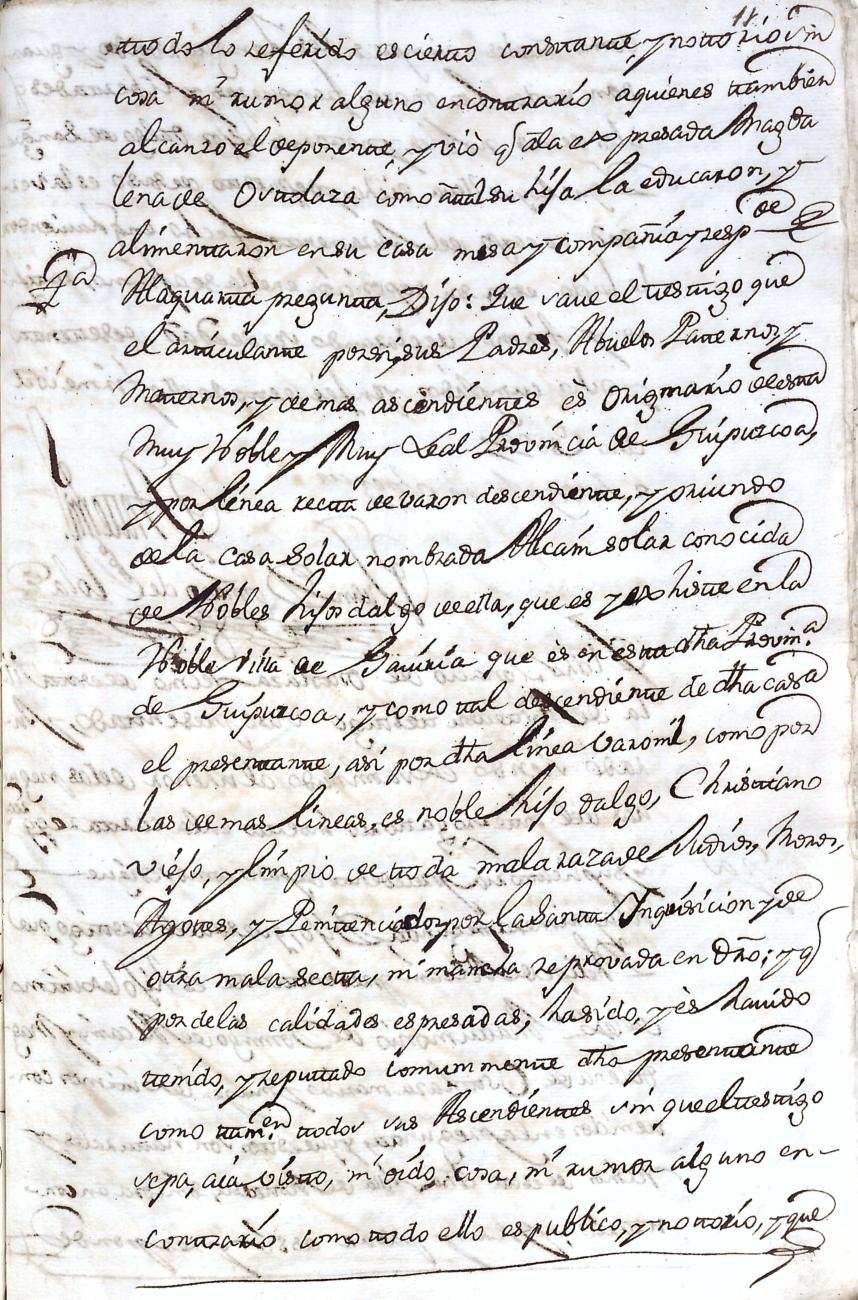 11
ttodo lo referido es cierto constante, y nottorio sin
cosa ni rumor alguno encontrario aquienes ttambien
alcanzo el deponente, y viò q̃ ála expresada Magda
lena de Ortalaza como átal su hija la educaron, y
alimenttaron en su casa mesa y compañia y resp.de
4.a
Ala quarta pregunta, Dijo: Que save el testigo que
el articulante por si, sus Padres, Abuelos Patternos y
matternos, y demas ascendientes ès originario de esta
Muy Noble y Muy Leal Provincia de Guipuzcoa,
y por linea recta de varon descendiente, y oriundo
de la casa solar nombrada solar conocida
de Nobles hijos dalgo de ella, que es y exhiste en la
Noble villa de Gaviria que ès en esta dha Provin.a
de Guipuzcoa, y como tal descendiente de dha casa
el presentante, asi por dha linea varonil, como por
las demas lineas, es noble hijo dalgo, Christiano
viejo, y limpio de toda mala raza de Judios, Moros,
Agotes, y Penitenciados por la Santa Inquisicion y de
otra mala secta, ni mancha reprovada en dr̃o; y q̃
por de las calidades espresadas, ha sido, y ès havido
tenido, y reputtado comunmente dho presentante
como tam.en ttodos sus Ascendientes sin que el testigo
sepa, aia visto, ni oido, cosa, ni rumor alguno en-
contrario como ttodo ello es publico, y nottorio, y que